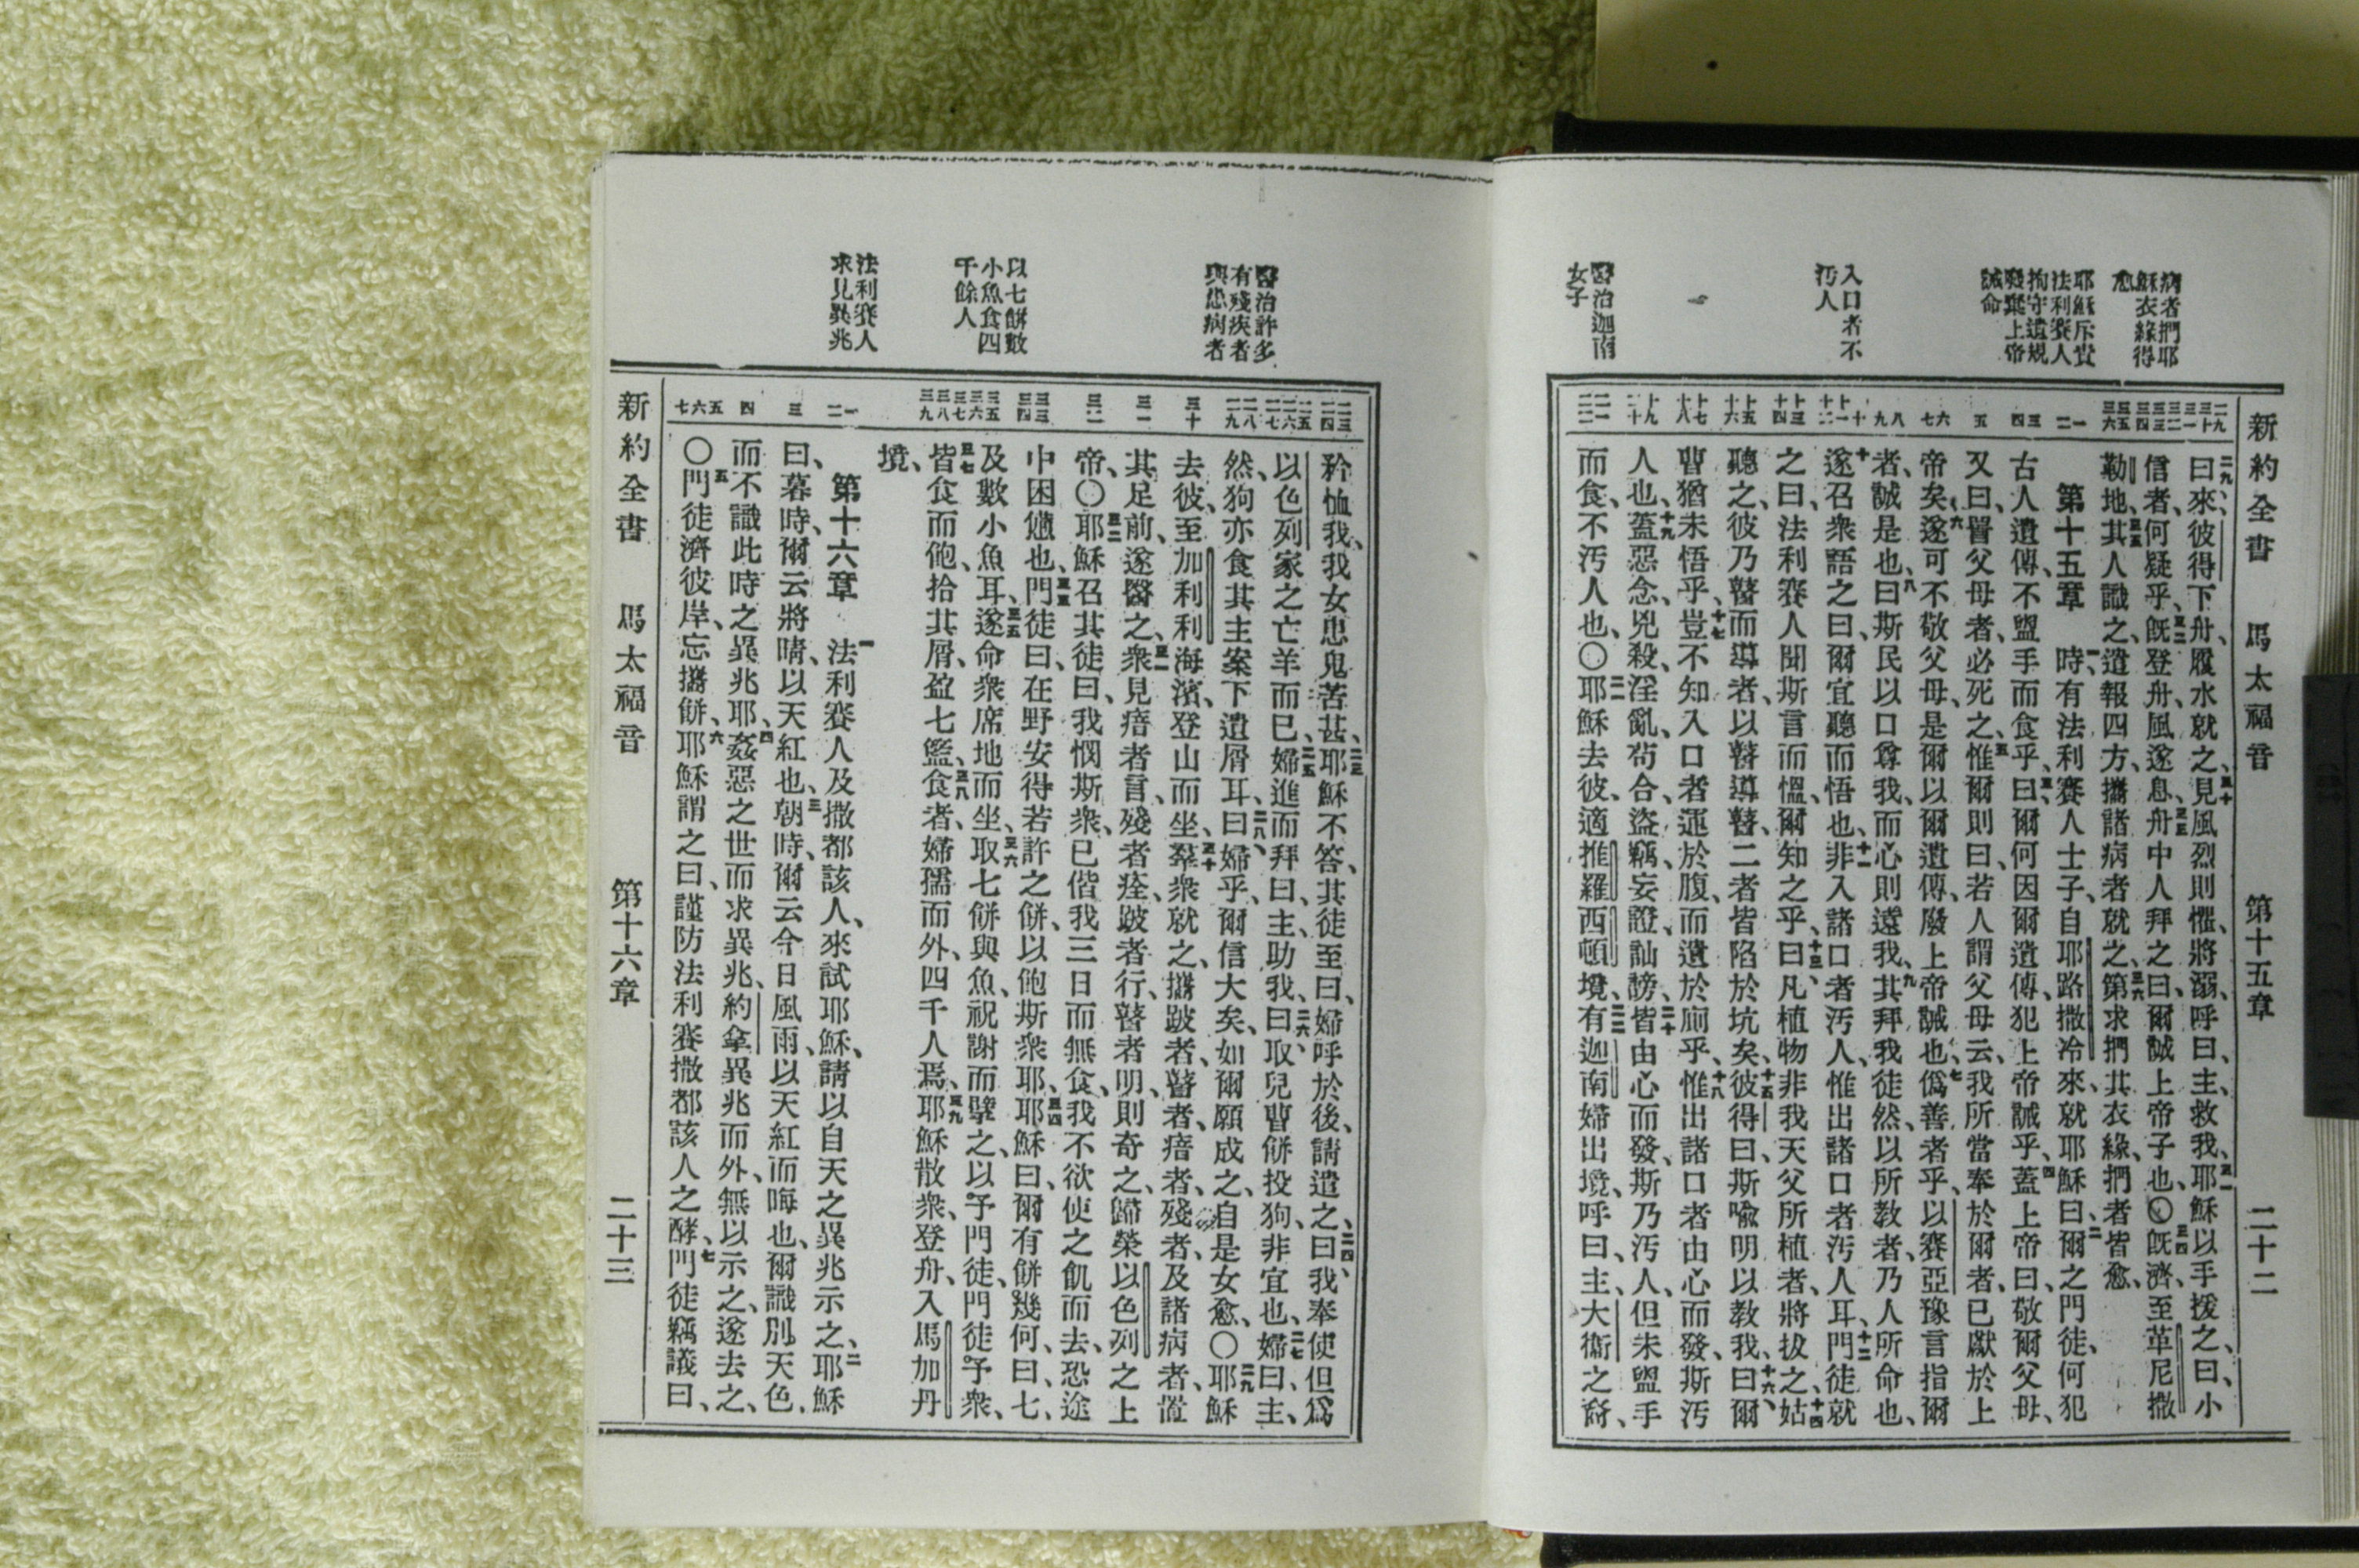 新約全書 馬太福音 第十五章 二十二
病者捫耶
穌衣緣得
愈
耶穌斥責
法利賽人
拘守遺規
廢棄上帝
誡命
入口者不
汚人
醫治迦南
女子
二九曰、來、彼得下舟、履水就之、三十見風烈則懼、將溺、呼曰、主、救我、三一耶穌以手援之、曰、小
信者、何疑乎、三二旣登舟、風遂息、三三舟中人拜之曰、爾誠上帝子也、〇三四旣濟、至革尼撒
勒地、三五其人識之、遣報四方、攜諸病者就之、三六第求捫其衣緣、捫者皆愈、
第十五章 一時、有法利賽人士子、自耶路撒冷來、就耶穌曰、二爾之門徒、何犯
古人遺傳、不盥手而食乎、三曰、爾何因爾遺傳、犯上帝誡乎、四蓋上帝曰、敬爾父母、
又曰、詈父母者、必死之、五惟爾則曰、若人謂父母云、我所當奉於爾者、已獻於上
帝矣、六遂可不敬父母、是爾以爾遺傳、廢上帝誡也、七僞善者乎、以賽亞豫言指爾
者、誠是也、八曰、斯民以口尊我、而心則遠我、九其拜我徒然、以所教者、乃人所命也、
十遂召衆語之曰、爾宜聽而悟也、十一非入諸口者汚人、惟出諸口者汚人耳、十二門徒就
之曰、法利賽人聞斯言而慍、爾知之乎、十三曰、凡植物非我天父所植者、將拔之、十四姑
聽之、彼乃瞽而導者、以瞽導瞽、二者皆陷於坑矣、十五彼得曰、斯喩明以教我、十六曰、爾
曹猶未悟乎、十七豈不知入口者運於腹、而遺於廁乎、十八惟出諸口者由心而發、斯汚
人也、十九蓋惡念、兇殺、淫亂、苟合、盜竊、妄證、訕謗、二十皆由心而發、斯乃汚人、但未盥手
而食、不汚人也、〇二一耶穌去彼、適推羅西頓境、二二有迦南婦出境、呼曰、主、大衞之裔、
新約全書 馬太福音 第十六章 二十三
醫治許多
有殘疾者
與患病者
以七餅數
小魚食四
千餘人
法利賽人
求見異兆
矜恤我、我女患鬼苦甚、二三耶穌不答、其徒至曰、婦呼於後、請遣之、二四曰、我奉使但爲
以色列家之亡羊而已、二五婦進而拜曰、主、助我、二六曰、取兒曹餅投狗、非宜也、二七婦曰、主、
然、狗亦食其主案下遺屑耳、二八曰、婦乎、爾信大矣、如爾願成之、自是女愈、〇二九耶穌
去彼、至加利利海濱、登山而坐、三十羣衆就之、攜跛者、瞽者、瘖者、殘者、及諸病者、置
其足前、遂醫之、三一衆見瘖者言、殘者痊、跛者行、瞽者明、則奇之、歸榮以色列之上
帝、〇三二耶穌召其徒曰、我憫斯衆、已偕我三日而無食、我不欲使之飢而去、恐途
中困憊也、三三門徒曰、在野安得若許之餅、以飽斯衆耶、三四耶穌曰、爾有餅幾何、曰、七、
及數小魚耳、三五遂命衆席地而坐、三六取七餅與魚、祝謝而擘之、以予門徒、門徒予衆、
三七皆食而飽、拾其屑、盈七籃、三八食者、婦孺而外、四千人焉、三九耶穌散衆、登舟、入馬加丹
境、
第十六章 一法利賽人及撒都該人、來試耶穌、請以自天之異兆示之、二耶穌
曰、暮時、爾云將晴、以天紅也、三朝時、爾云今日風雨、以天紅而晦也、爾識別天色、
而不識此時之異兆耶、四姦惡之世而求異兆、約拿異兆而外、無以示之、遂去之、
〇五門徒濟彼岸、忘攜餅、六耶穌謂之曰、謹防法利賽撒都該人之酵、七門徒竊議曰、